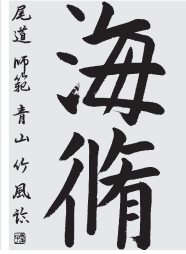 海脩
尾道 師範 青山竹風